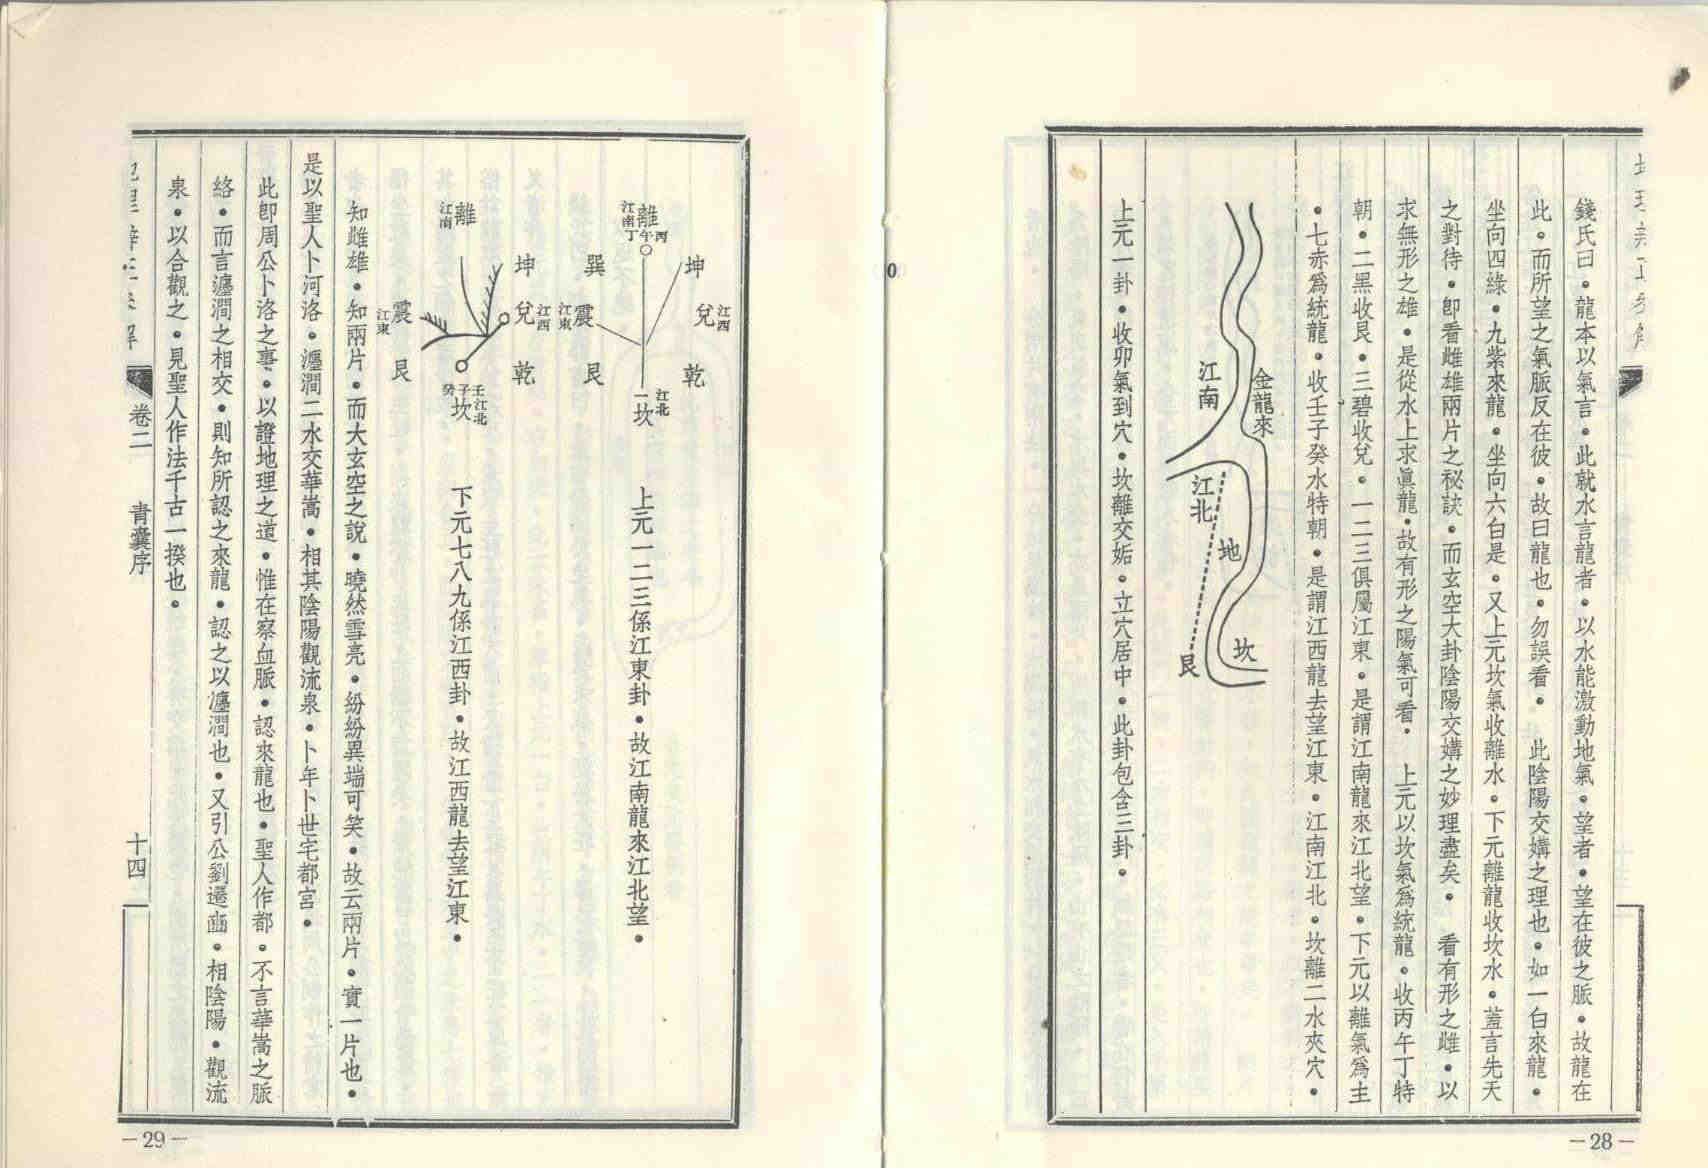 錢氏曰。龍本以氣言。此就水言龍者。以水能激動地氣。望者。望在彼之脈。故龍在
此。而所望之氣脈反在彼。故曰龍也。勿誤看。 此陰陽交媾之理也。如一白來龍。
坐向四綠。九紫來龍。坐向六白是。又上元坎氣收離水。下元離龍收坎水。蓋言先天
之對待。即看雌雄兩片之秘訣。而玄空大卦陰陽交媾之妙理盡矣。 看有形之雌。以
求無形之雄。是從水上求眞龍。故有形之陽氣可看。 上元以坎氣爲統龍。收丙午丁特
朝。二黑收艮。三碧收兌。一二三俱屬江東。是謂江南龍來江北望。下元以離氣爲主
。七赤爲統龍。收壬子癸水特朝。是謂江西龍去望江東。江南江北。坎離二水夾穴。
金龍來
江南
江北
地
坎
艮
上元一卦。收卯氣到穴。坎離交姤。立穴居中。此卦包含三卦。
－28－
離
江南
丙
午
丁
坤
巽
兌
江西
震
江東
乾
艮
一坎
江北
上元一二三係江東卦。故江南龍來江北望。
離
江南
坤
兌
江西
震
江東
乾
艮
壬
子
癸
坎
江北
下元七八九係江西卦。故江西龍去望江東。
知雌雄。知兩片。而大玄空之說。曉然雪亮。紛紛異端可笑。故云兩片。實一片也。
是以聖人卜河洛。瀍澗二水交華嵩。相其陰陽觀流泉。卜年卜世宅都宮。
此卽周公卜洛之事。以證地理之道。惟在察血脈。認來龍也。聖人作都。不言華嵩之脈
絡。而言瀍澗之相交。則知所認之來龍。認之以瀍澗也。又引公劉遷豳。相陰陽。觀流
泉。以合觀之。見聖人作法千古一揆也。
卷二
青囊序
十四
－29－